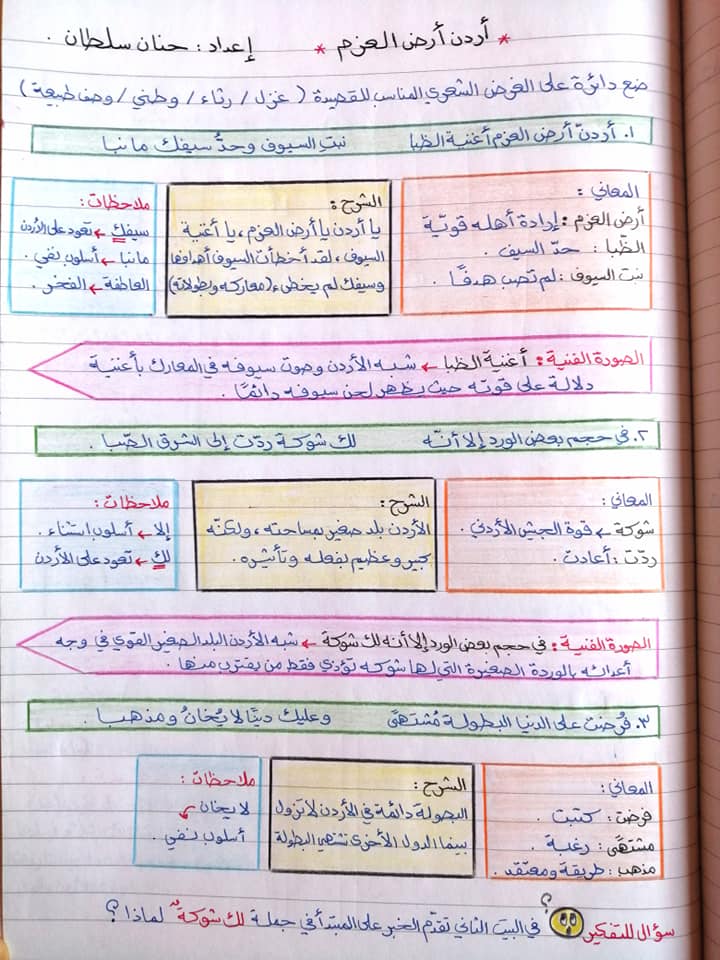 * أردن أرض العزم * إعداد : حنان سلطان .
ضع دائرة على الغرض الشعري المناسب للقصيدة ( غزل / رثاء / وطني / وصف طبيعة )
١. أردنّ أرض العزم أغنية الظبا نبتِ السيوف وحدُّ سيفك ما نبا
المعاني :
أرض العزم : إرادة أهله قويّة
الظُّبا : حدّ السيف .
نبت السيوف : لم تصب هدفًا .
الشرح :
يا أردن يا أرض العزم ، يا أغنية
السيوف ، لقد أخطأت السيوف أهدافها
وسيفك لم يخطىء (معاركه وبطولاته)
ملاحظات :
سيفك ← تعود على الأردن
ما نبا ← أسلوب نفي .
العاطفة ← الفخر .
الصورة الفنية : أغنية الظبا ← شبه الأردن وصوت سيوفه في المعارك بأغنية
دلالة على قوته حيث يظهر لحن سيوفه دائمًا .
٢. في حجم بعض الورد إلا أنّه لك شوكة ردّت إلى الشرق الصّبا .
المعاني :
شوكة ← قوة الجيش الأردني .
ردّت : أعادت .
الشرح :
الأردن بلد صغير بمساحته ، ولكنّه
كبير وعظيم بفعله وتأثيره .
ملاحظات :
إلا ← أسلوب استثناء .
لك ← تعود على الأردن
الصورة الفنية : في حجم بعض الورد إلا أنه لك شوكة ← شبه الأردن البلد الصغير القوي في وجه
أعدائه بالوردة الصغيرة التي لها شوكه تؤذي فقط من يقترب منها .
٣. فُرضت على الدنيا البطولة مُشتهًى وعليك دينًا لا يُخانُ ومذهبا .
المعاني :
فرضت : كتبت .
مشتهًى : رغبة .
مذهب : طريقة ومعتقد .
الشرح :
البطولة دائمة في الأردن لا تزول
بينما الدول الأخرى تشتهي البطولة
ملاحظات :
لا يخان ←
أسلوب نفي .
سؤال للتفكير ؟ في البيت الثاني تقدّم الخبر على المبتدأ في جملة لك شوكةٌ لماذا ؟